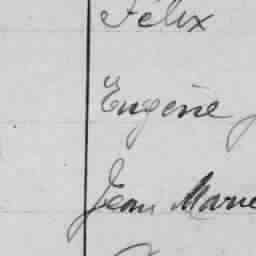 Félix
Eugène
Jean Marie